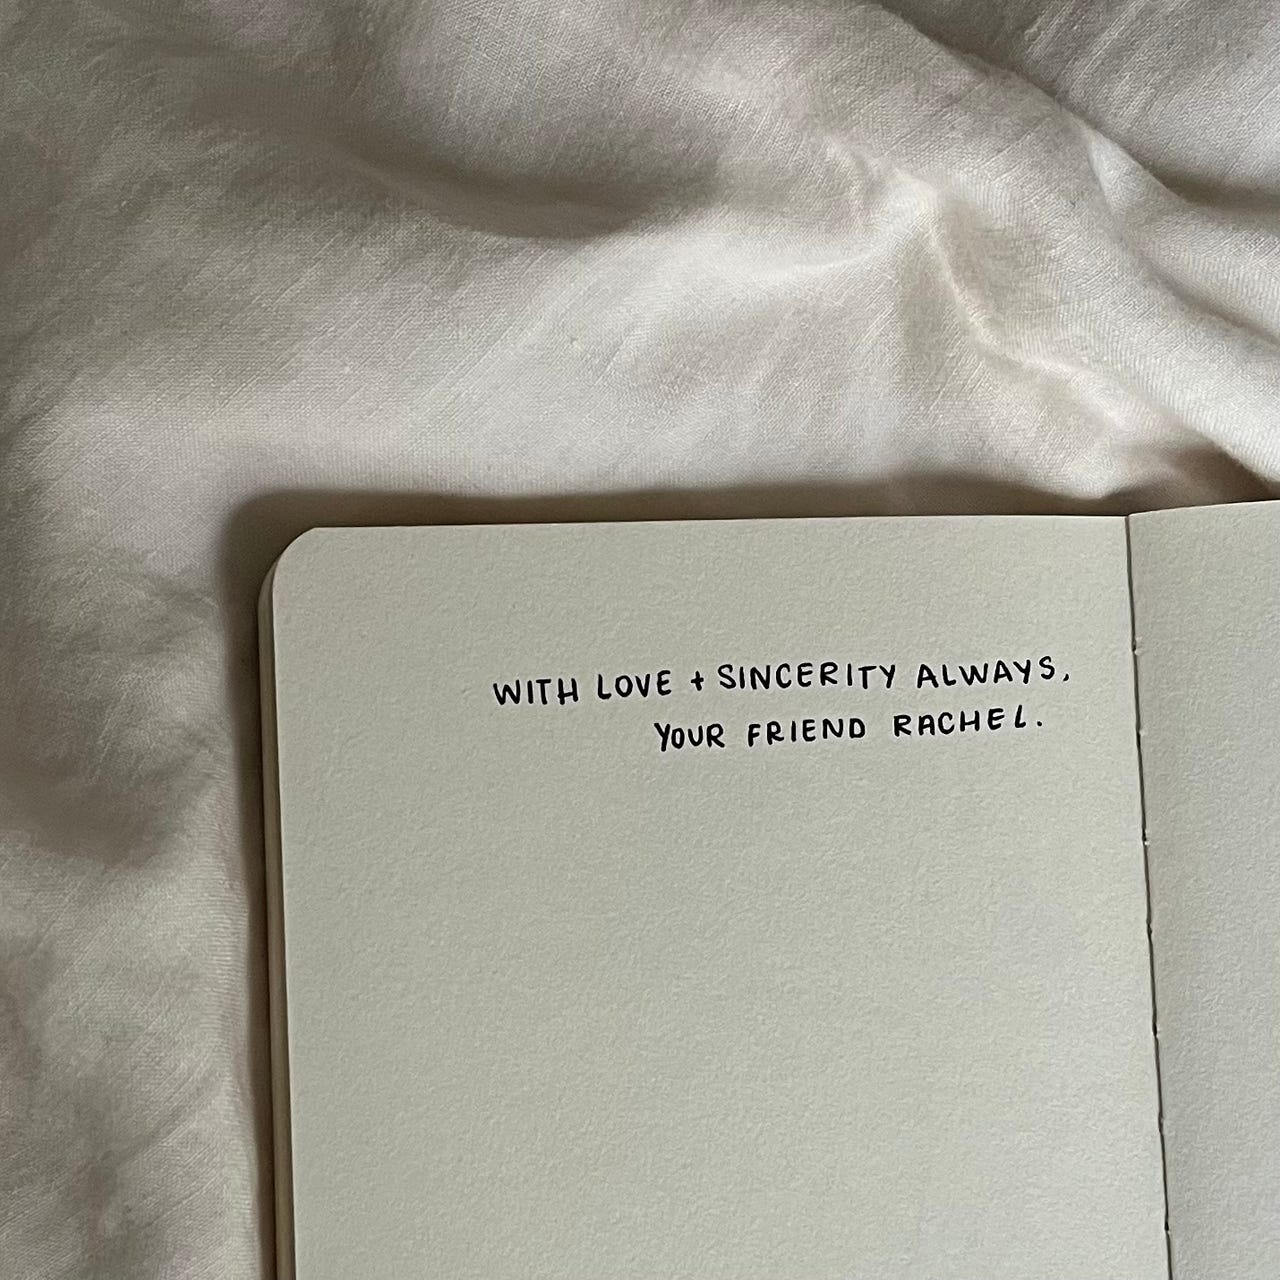 WITH LOVE + SINCERITY ALWAYS,
YOUR FRIEND RACHEL.